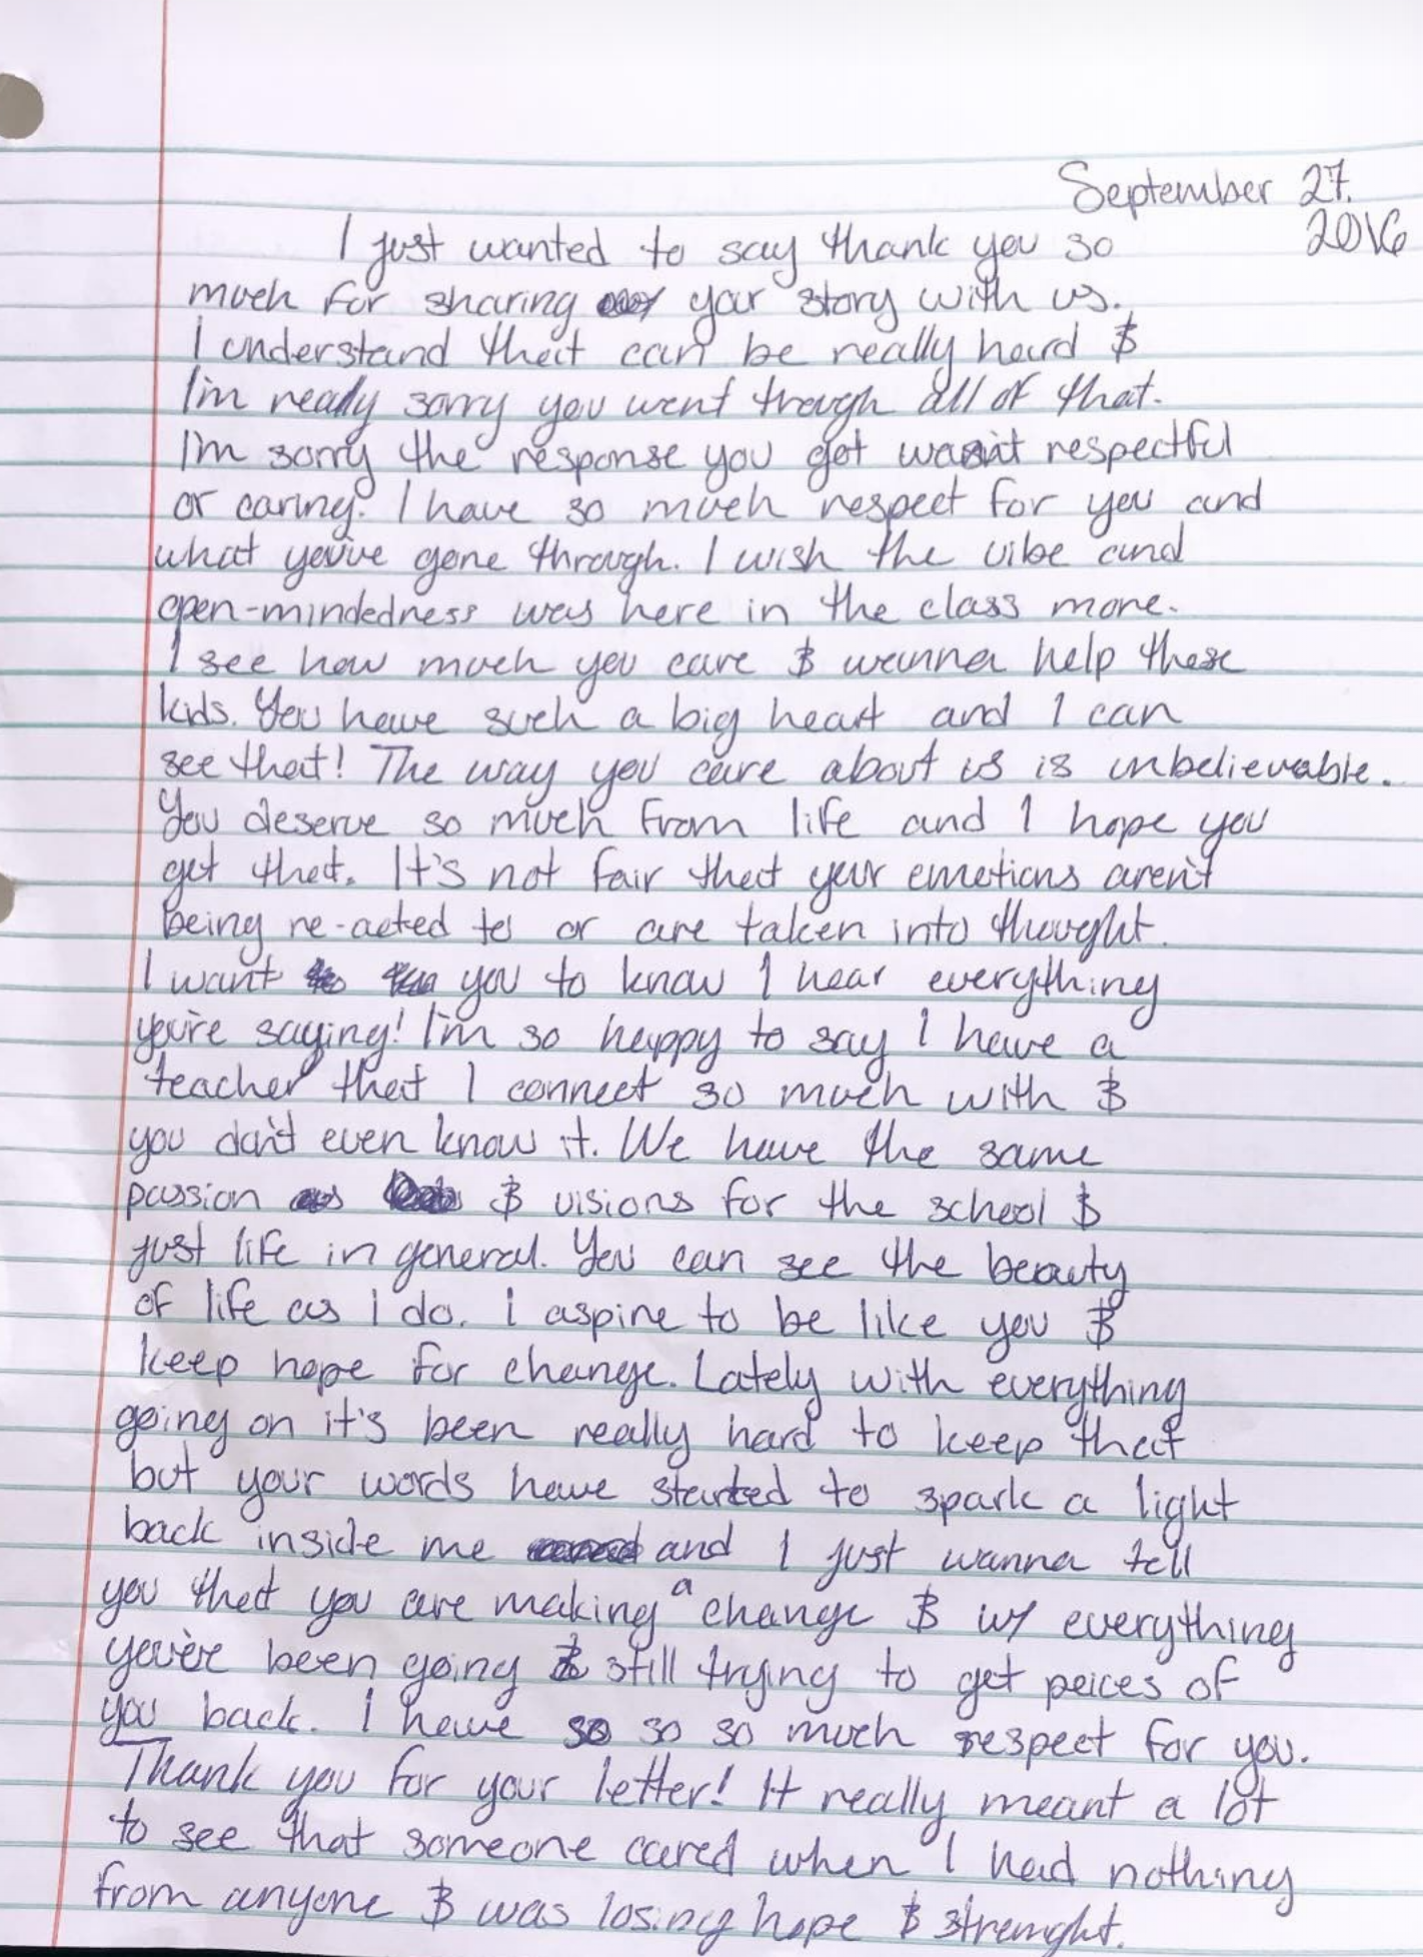 September 27.
2016
I just wanted to say thank you so
much for sharing your story with us.
I understand that can be really hard &
I'm really sorry you went through all of that.
I'm sorry the response you got wasn't respectful
or caring. I have so much respect for you and
what you've gone through. I wish the vibe and
open-mindedness was here in the class more.
I see how much you care & wanna help these
kids. You have such a big heart and I can
see that! The way you care about us is unbelievable.
You deserve so much from life and I hope you
get that. It's not fair that your emotions aren't
being re-acted to or are taken into thought.
I want you to know I hear everything
you're saying! I'm so happy to say I have a
teacher that I connect so much with &
you don't even know it. We have the same
passion & visions for the school &
just life in general. You can see the beauty
of life as I do. I aspire to be like you &
keep hope for change. Lately with everything
going on it's been really hard to keep that
but your words have started to spark a light
back inside me and I just wanna tell
you that you are making a change & w/ everything
you've been going & still trying to get peices of
you back. I have so so so much respect for you.
Thank you for your letter! It really meant a lot
to see that someone cared when I had nothing
from anyone & was losing hope & strenght.